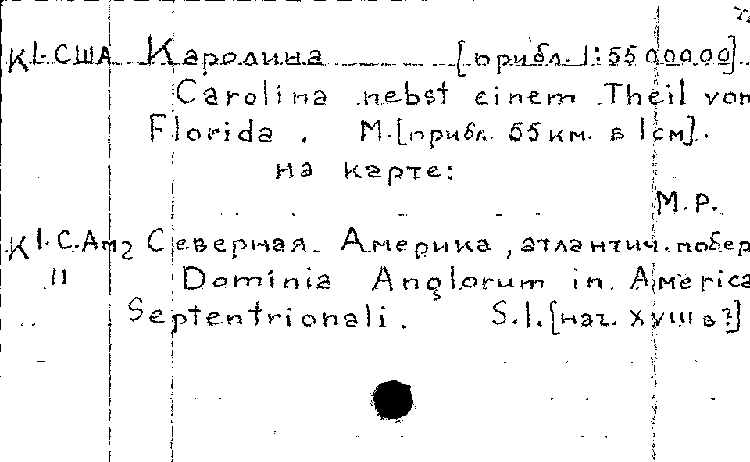 К1-США Каролина [прибл. 1:5500000]
Carolina nebst einem Theil von
Florida. М.[прибл. 55 км. в 1 см].
на карте:
М.Р.
К1.С.Ам2 Северная Америка, атлантич. побер
11 Dominia Anglorum in America
Septentrionali. S.l.[нач. XVIII в?]